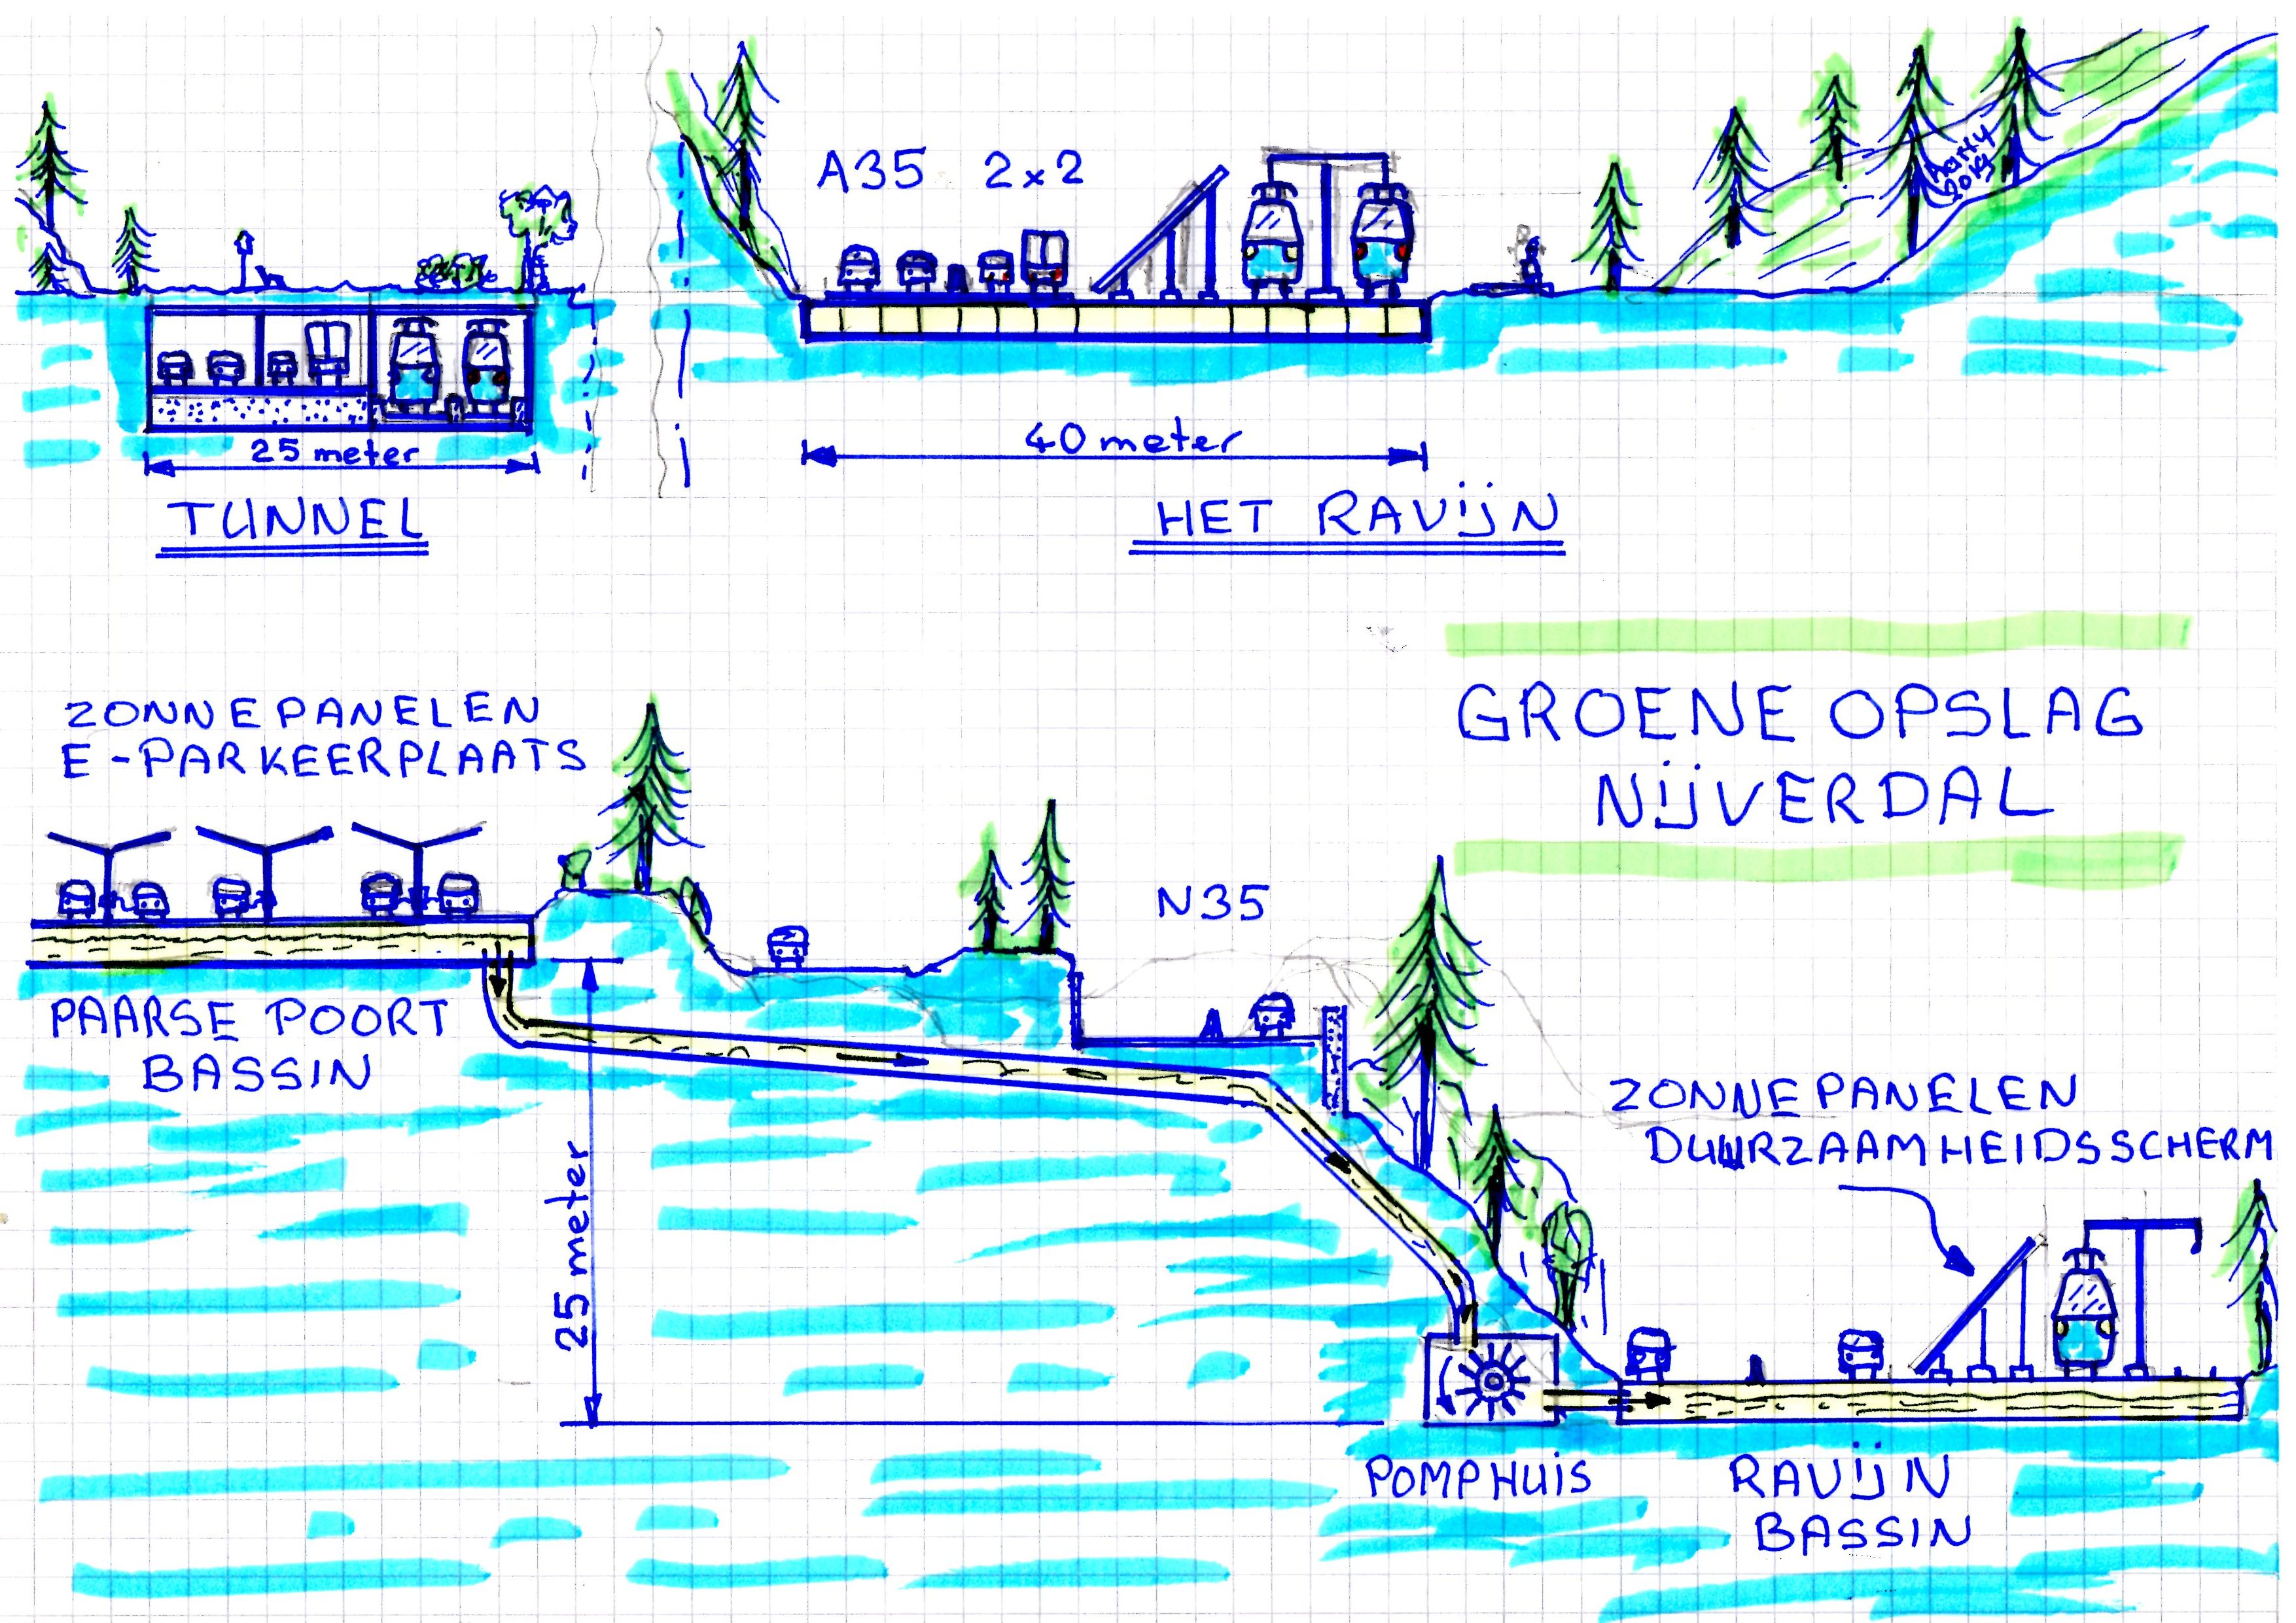 A35 2x2
Harry
2019
25 meter
TUNNEL
40 meter
HET RAVIJN
GROENE OPSLAG
NIJVERDAL
ZONNEPANELEN
E-PARKEERPLAATS
N35
PAARSE POORT
BASSIN
25 meter
ZONNEPANELEN
DUURZAAMHEIDSSCHERM
POMPHUIS
RAVIJN
BASSIN